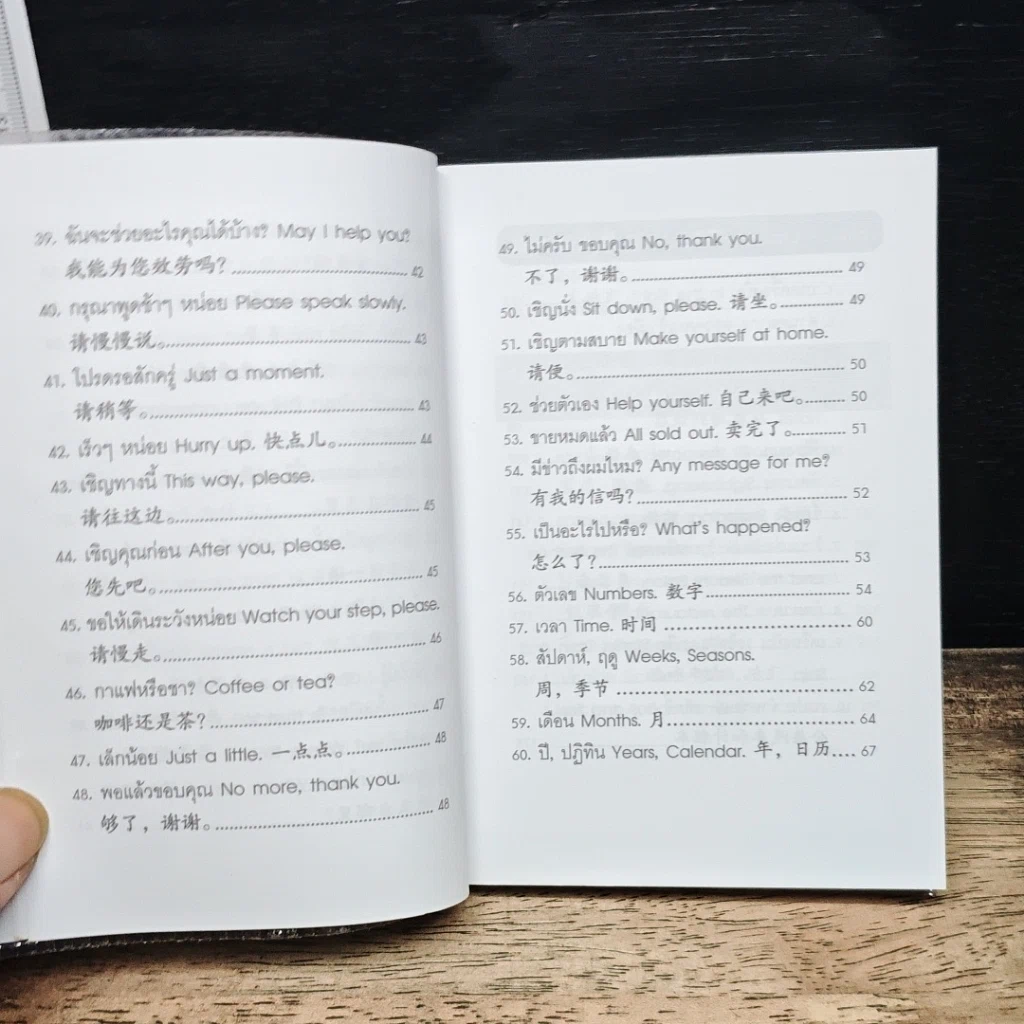 39. ฉันจะช่วยอะไรคุณได้บ้าง? May I help you?
我能为您效劳吗?........................................ 42
40. กรุณาพูดช้าๆ หน่อย Please speak slowly.
请慢慢说。........................................ 43
41. โปรดรอสักครู่ Just a moment.
请稍等。........................................ 43
42. เร็วๆ หน่อย Hurry up. 快点儿。............... 44
43. เชิญทางนี้ This way, please.
请往这边。........................................ 45
44. เชิญคุณก่อน After you, please.
您先吧。........................................ 45
45. ขอให้เดินระวังหน่อย Watch your step, please.
请慢走。........................................ 46
46. กาแฟหรือชา? Coffee or tea?
咖啡还是茶?........................................ 47
47. เล็กน้อย Just a little. 一点点。............... 48
48. พอแล้วขอบคุณ No more, thank you.
够了，谢谢。........................................ 48
49. ไม่ครับ ขอบคุณ No, thank you.
不了，谢谢。........................................ 49
50. เชิญนั่ง Sit down, please. 请坐。............ 49
51. เชิญตามสบาย Make yourself at home.
请便。........................................ 50
52. ช่วยตัวเอง Help yourself. 自己来吧。......... 50
53. ขายหมดแล้ว All sold out. 卖完了。............ 51
54. มีข่าวถึงผมไหม? Any message for me?
有我的信吗?........................................ 52
55. เป็นอะไรไปหรือ? What's happened?
怎么了?........................................ 53
56. ตัวเลข Numbers. 数字........................ 54
57. เวลา Time. 时间 ........................ 60
58. สัปดาห์, ฤดู Weeks, Seasons.
周，季节 ........................................ 62
59. เดือน Months. 月........................ 64
60. ปี, ปฏิทิน Years, Calendar. 年，日历.... 67